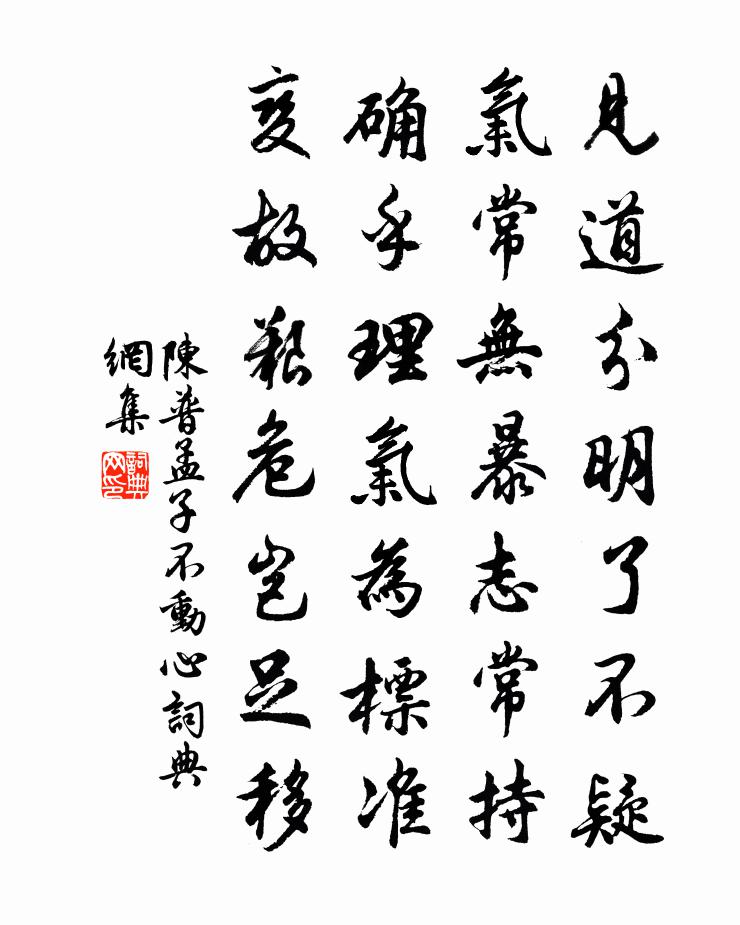 見道分明了不疑
氣常無暴志常持
确乎理氣為標准
变故艱危岂足移
陳普孟子不動心詞典
網集
詞典
网印